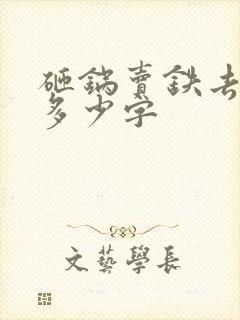 砸鍋賣鉄去
多少字
文藝學長